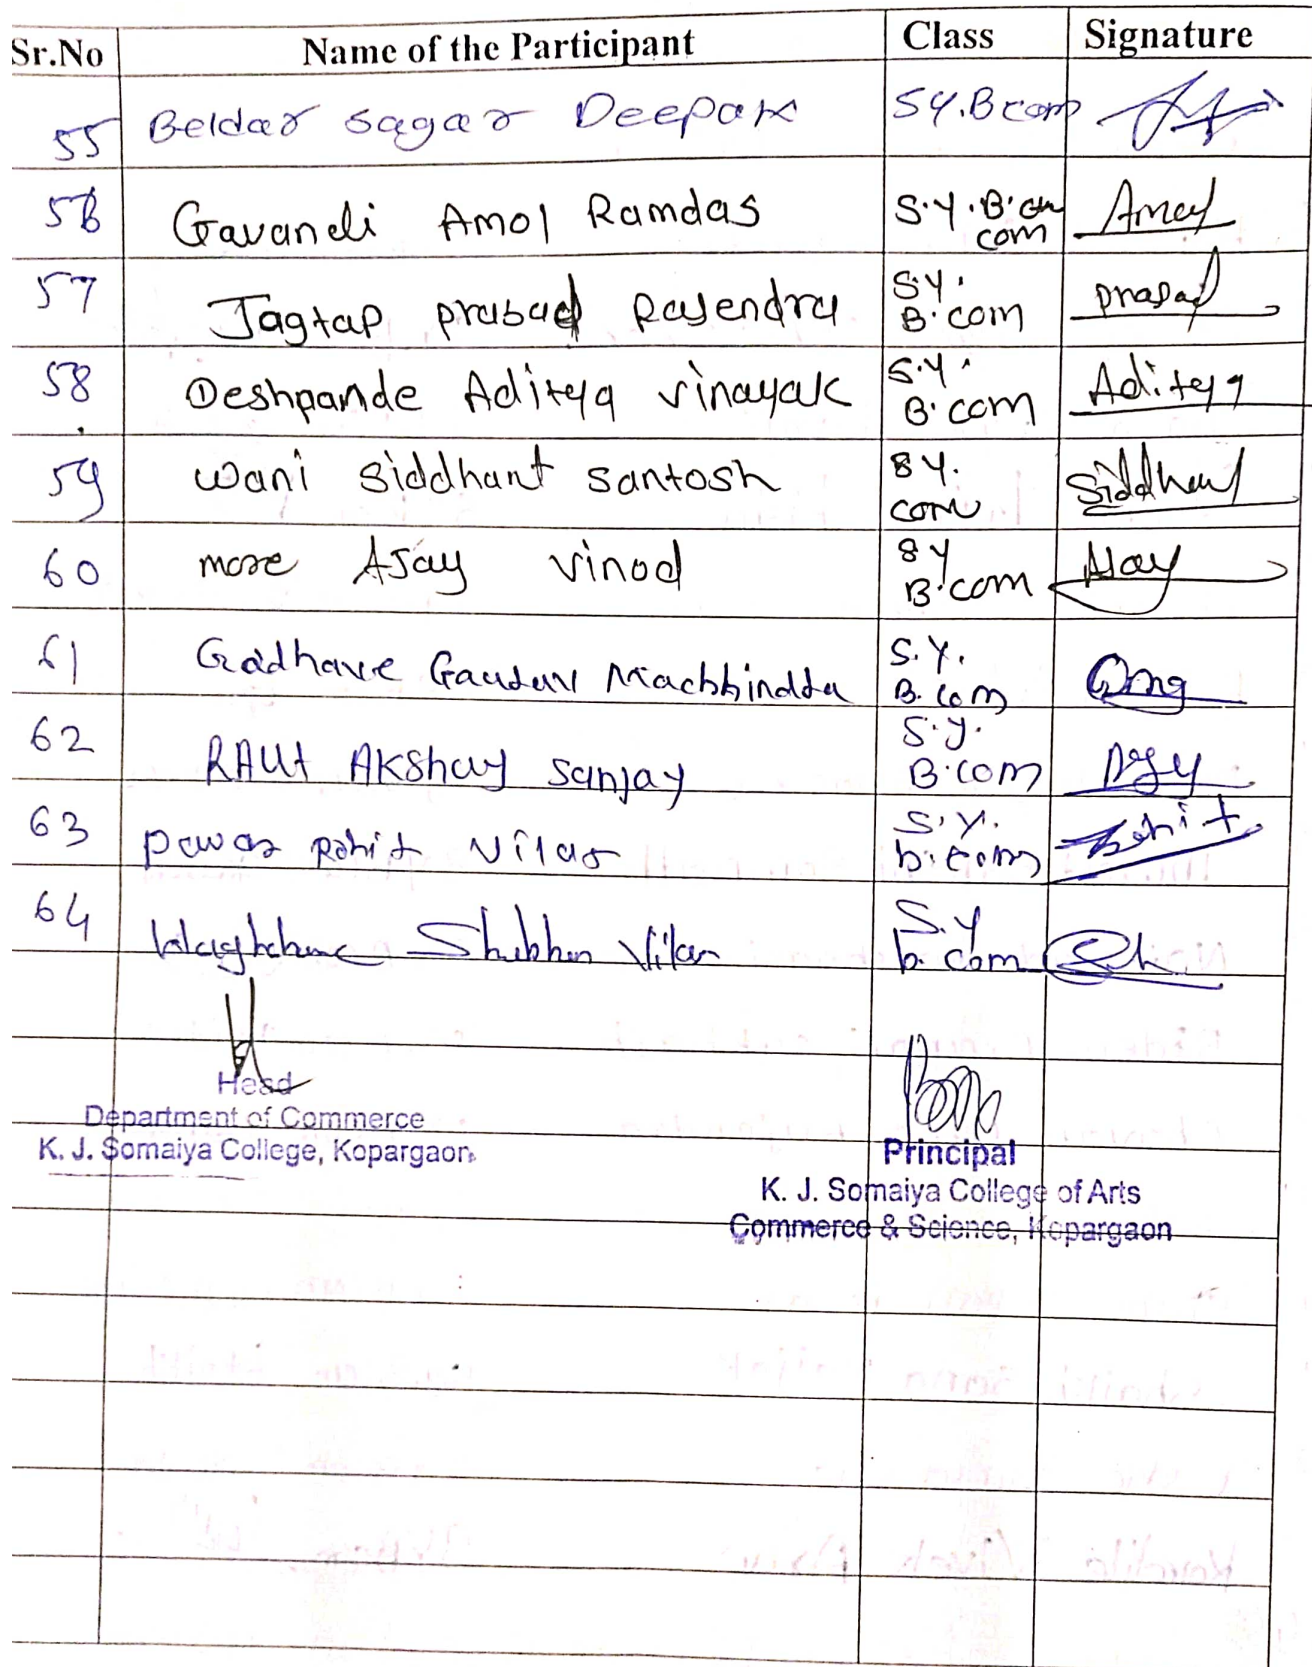 Sr.No Name of the Participant Class Signature
55 Beldar Sagar Deepak SY.Bcom
56 Gavandi Amol Ramdas S.Y.B.
com Amol
57 Jagtap prasad Rajendra S.Y.
B.com prasad
58 Deshpande Aditya vinayak S.Y.
B.com Aditya
59 wani Siddhant Santosh SY.
com Siddhant
60 more AJay vinod SY
B.com AJay
61 Gadhave Gautam Machhindra S.Y.
B.com
62 RAUt AKshay Sanjay S.Y.
B.com
63 Pawar Rohit Vilas S.Y.
b.com Rohit
64 Shubham Vilas S.Y
b.com
Head
Department of Commerce
K. J. Somaiya College, Kopargaon.
Principal
K. J. Somaiya College of Arts
Commerce & Science, Kopargaon